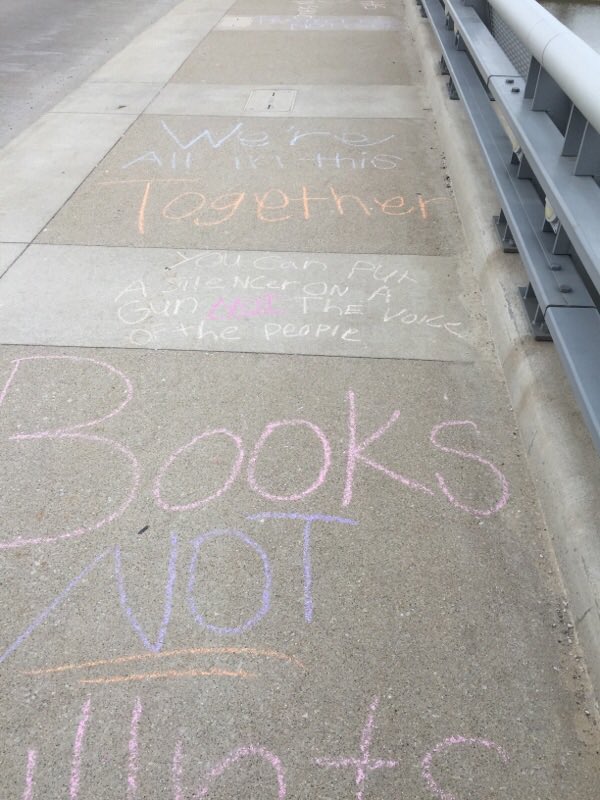 We're
All in this
Together
You Can Put
A Silencer ON A
Gun THE VOICE
Of the peOPLE
Books
NOT